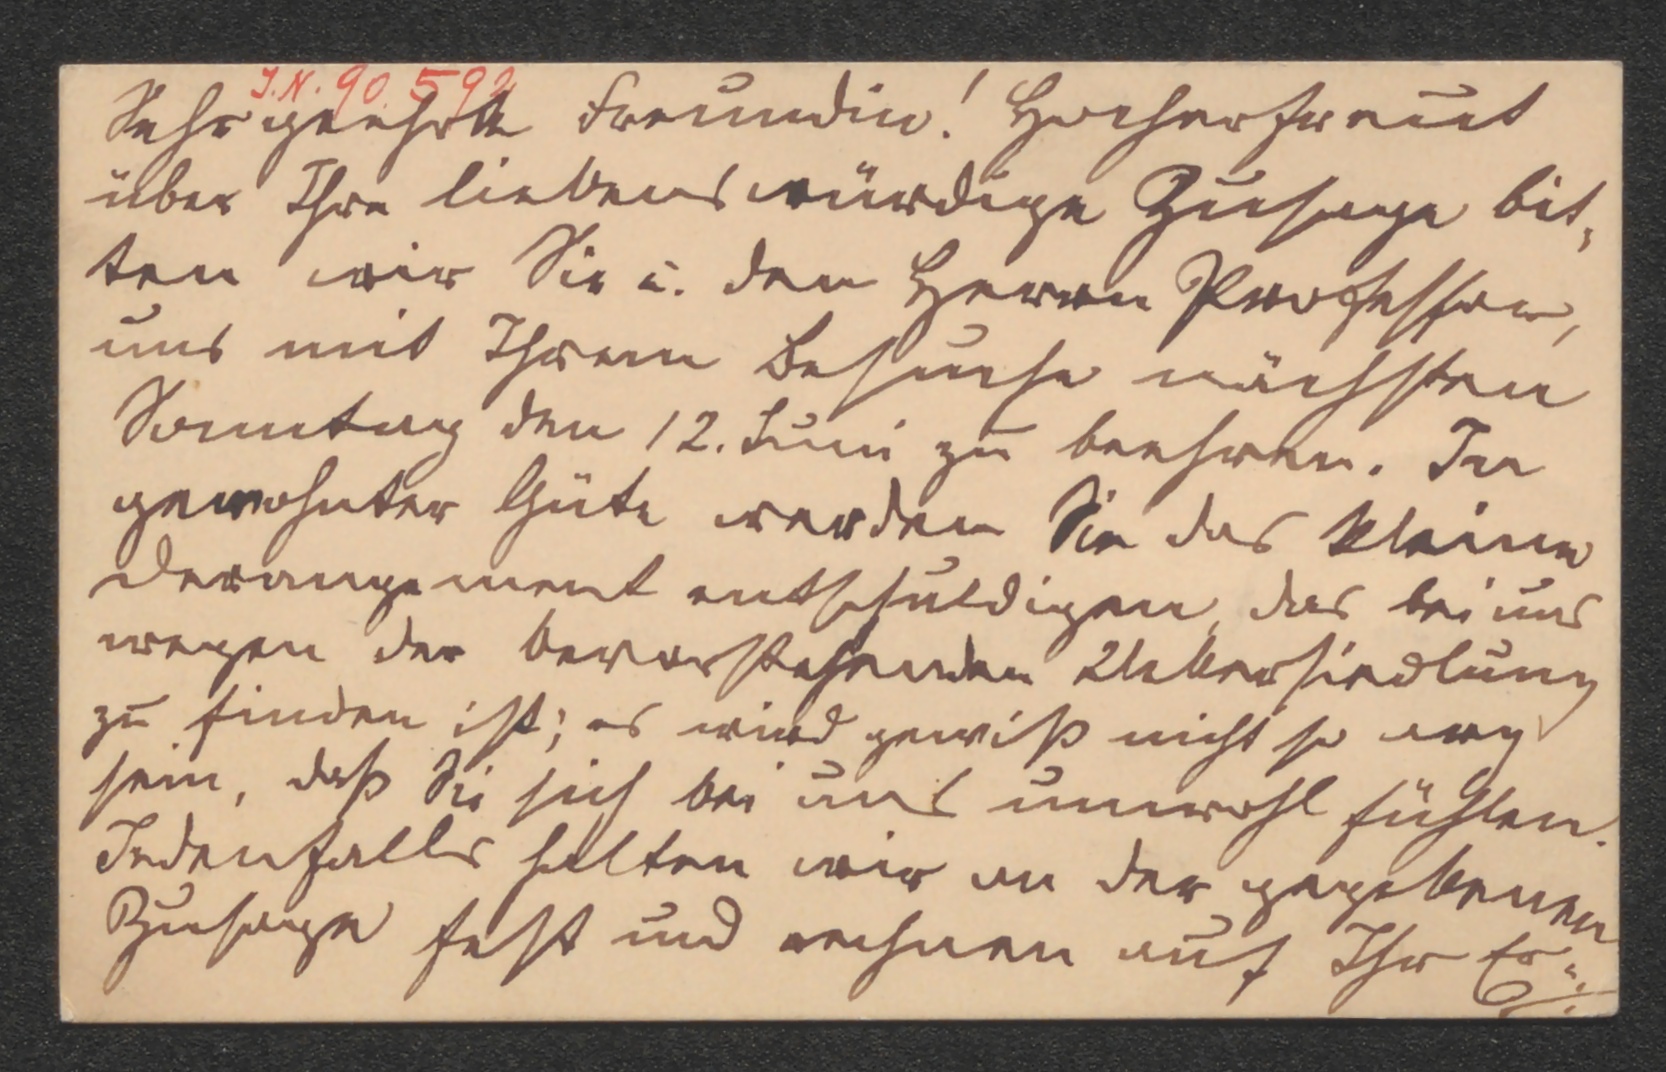 I.N. 90.592
Sehr geehrte Freundin! Hocherfreut
über Ihre liebenswürdige Zusage bit-
ten wir Sie u. den Herrn Professor,
uns mit Ihrem Besuche nächsten
Sonntag den 12. Juni zu beehren. In
gewohnter Güte werden Sie das kleine
Derangement entschuldigen, das bei uns
wegen der bevorstehenden Uebersiedlung
zu finden ist; es wird gewiß nicht so arg
sein, daß Sie sich bei uns unwohl fühlen.
Jedenfalls halten wir an der gegebenen
Zusage fest und rechnen auf Ihr Er-